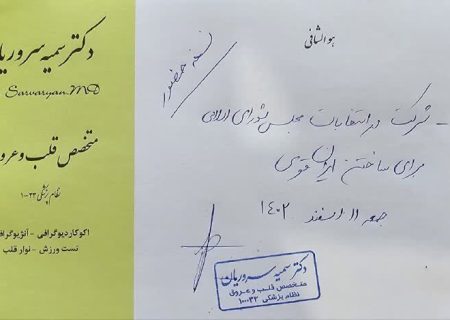 دکتر سمیه سروریان
Sarvaryan.MD
متخصص قلب و عرو
نظام پزشکی ۱۰۰۳۲
اکوکاردیوگرافی - آنژیوگراف
تست ورزش - نوار قلب
هوالشافی
نسخه حضور
- شرکت در انتخابات مجلس شورای اسلامی
برای ساختن ایران قوی
جمعه ۱۱ اسفند ۱۴۰۲
دکتر سمیه سروریان
متخصص قلب و عروق
نظام پزشکی ۱۰۰۳۲